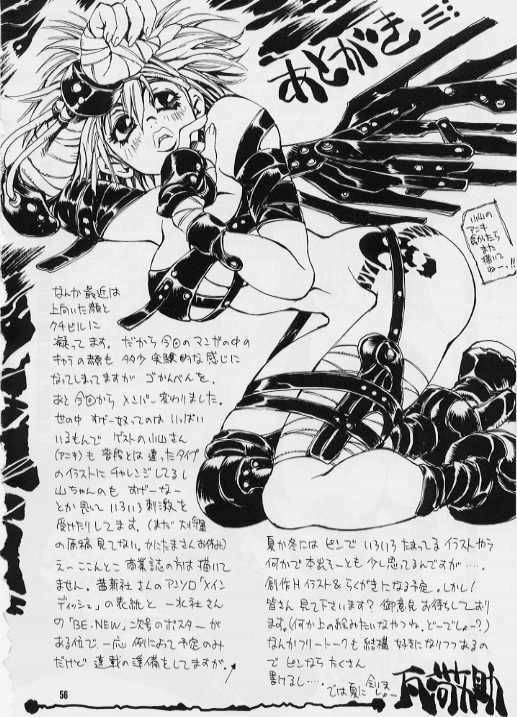 あとがき
小山の
アニキ
また
描いて
ねー!!
なんか最近は
上向いた顔と
クチビルに
凝ってます。だから今回のマンガの中の
キャラの顔も多少実験的な感じに
なってしまってますがごかんべんを。
あと今回からメンバー変わりました。
世の中すげー奴ってのはいっぱい
いるもんでゲストの小山さん
(アニキ)も普段とは違ったタイプ
のイラストにチャレンジしてるし
山ちゃんのもすげーなー
とか思っていろいろ刺激を
受けたりしてます。(まだ大編
の原稿見てない。かにたまさんお休み)
えーここんとこ商業誌の方は描いて
ません。茜新社さんのアンソロ「メイン
ディッシュ」の表紙と一水社さんの
「BE-NEW」二次号のポスターが
ある位で、一応例によって予定のみ
だけど連載の準備をしてますが、!
夏か冬にはピンでいろいろたまってるイラストやら
何かで本出そーとも少し思ってるんですが……。
創作Hイラスト&らくがきになる予定。しかし!
皆さん見て下さいます?御意見お待ちしており
ます。(何か上の絵みたいなやつね、どーでしょー?)
なんかフリートークも結構好きになりつつあるの
でピンならたくさん
書けるし……。
では夏に会いま
しょー
56